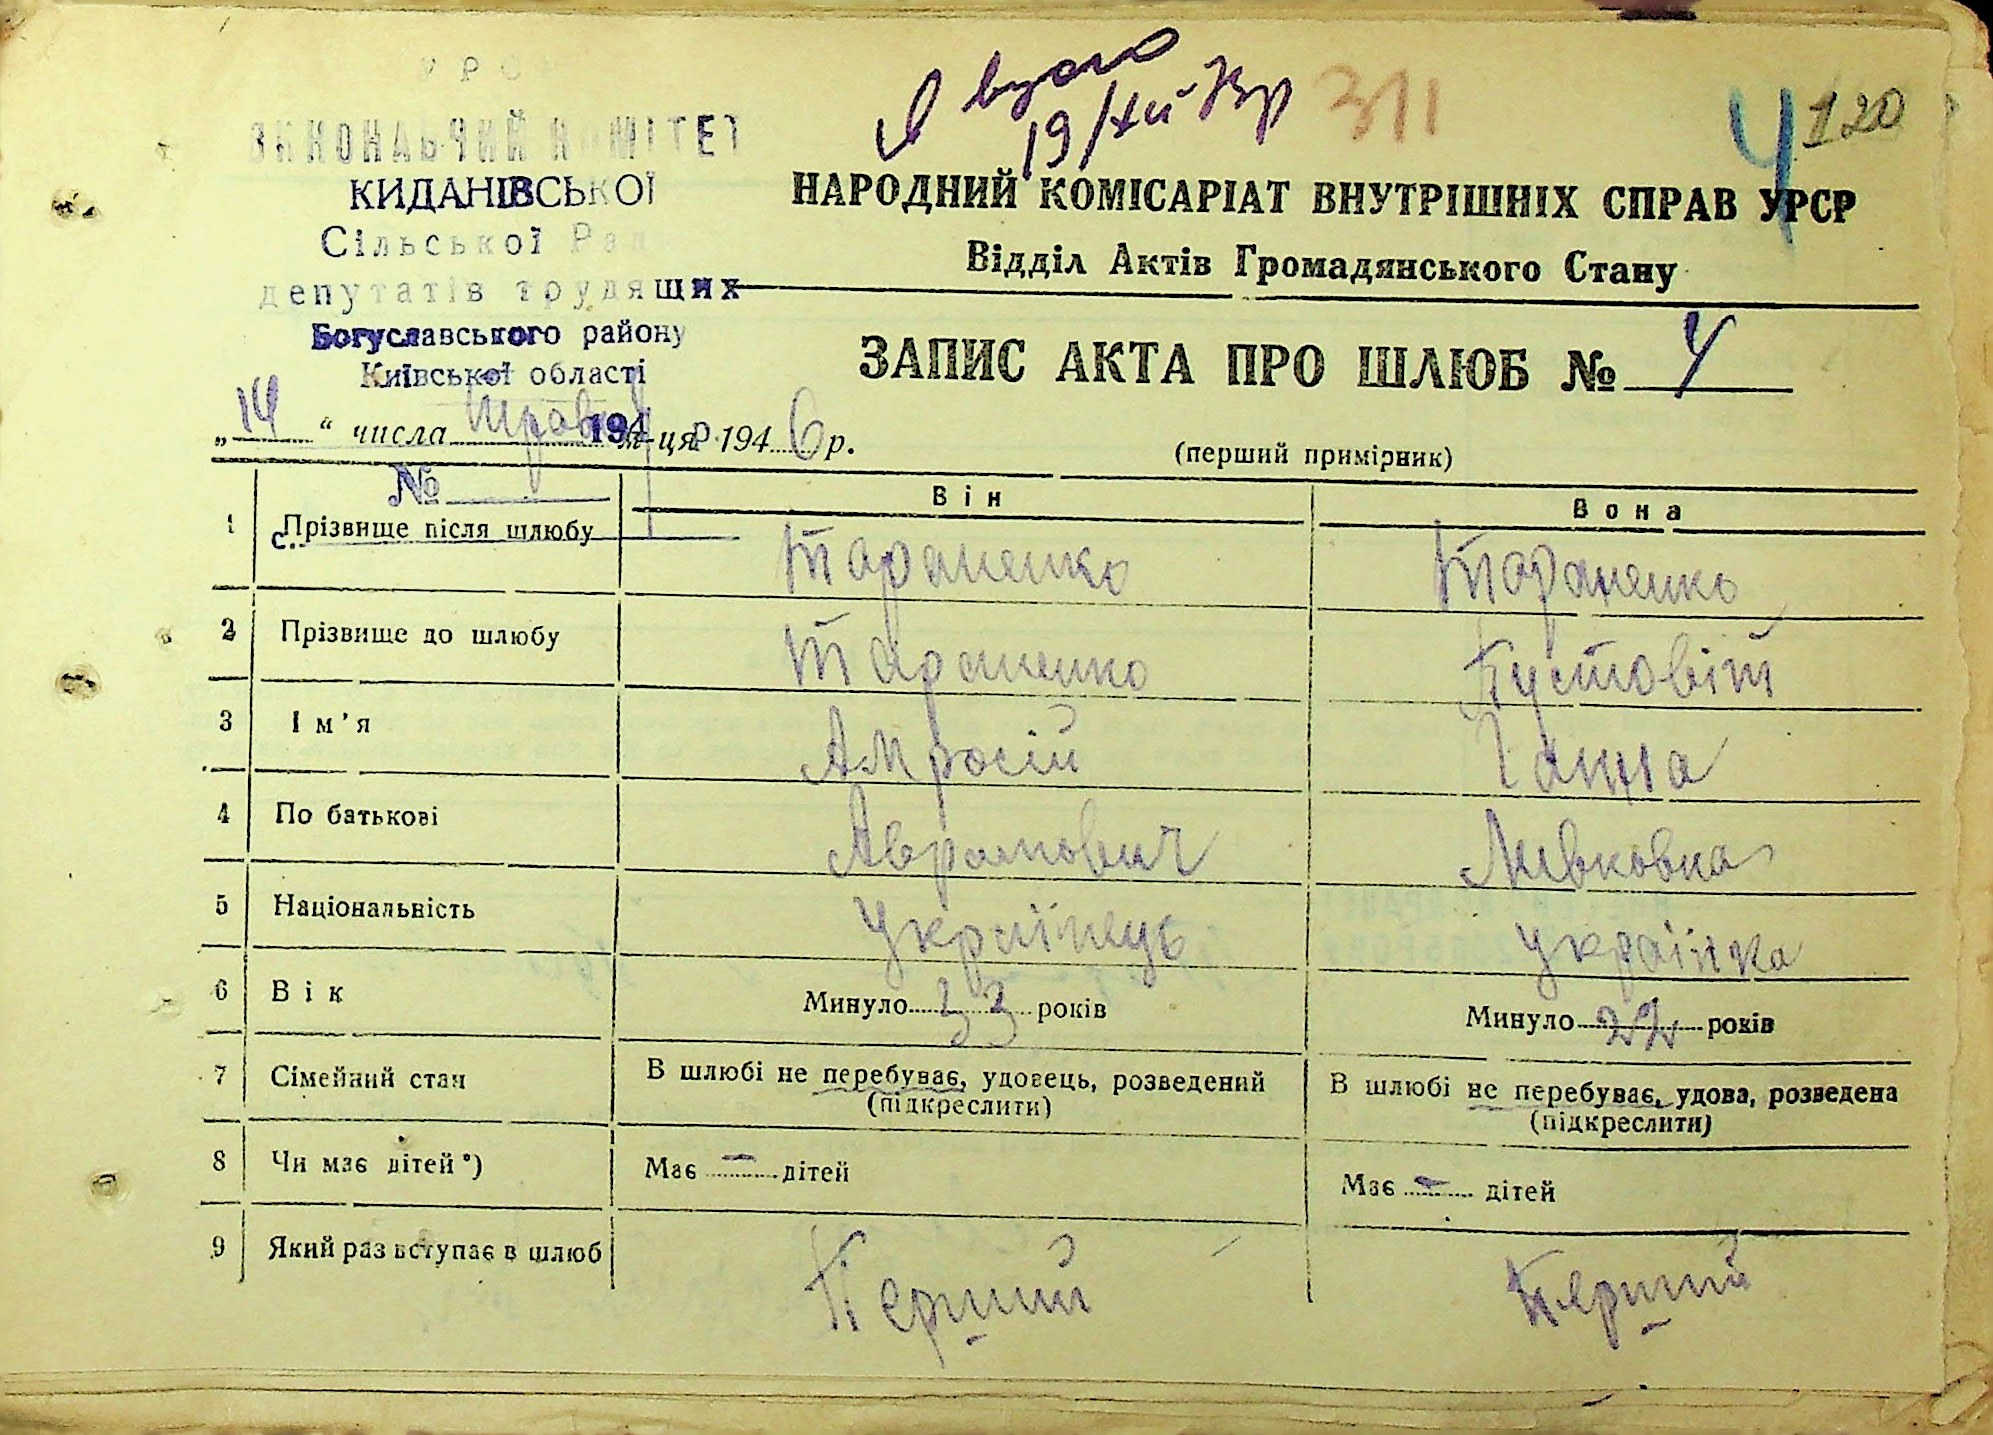 УРСР
ВИКОНАВЧИЙ КОМІТЕТ
КИДАНІВСЬКОЇ
Сільської Ради
депутатів трудящих
Богуславського району
Київської області
194 р.
№
с.
19/XII
311
4
120
НАРОДНИЙ КОМІСАРІАТ ВНУТРІШНІХ СПРАВ УРСР
Відділ Актів Громадянського Стану
ЗАПИС АКТА ПРО ШЛЮБ № 4
„14“ числа травня м-ця 1946 р.
(перший примірник)
Він Вона
1 Прізвище після шлюбу Тараненко Тараненко
2 Прізвище до шлюбу Тараненко Пустовіт
3 Ім’я Амросій Ганна
4 По батькові Аврамович Левковна
5 Національність Українець Українка
6 Вік Минуло 33 років Минуло 22 років
7 Сімейний стан В шлюбі не перебуває, удовець, розведений В шлюбі не перебуває, удова, розведена
(підкреслити) (підкреслити)
8 Чи має дітей*) Має – дітей Має – дітей
9 Який раз вступає в шлюб Перший Перший